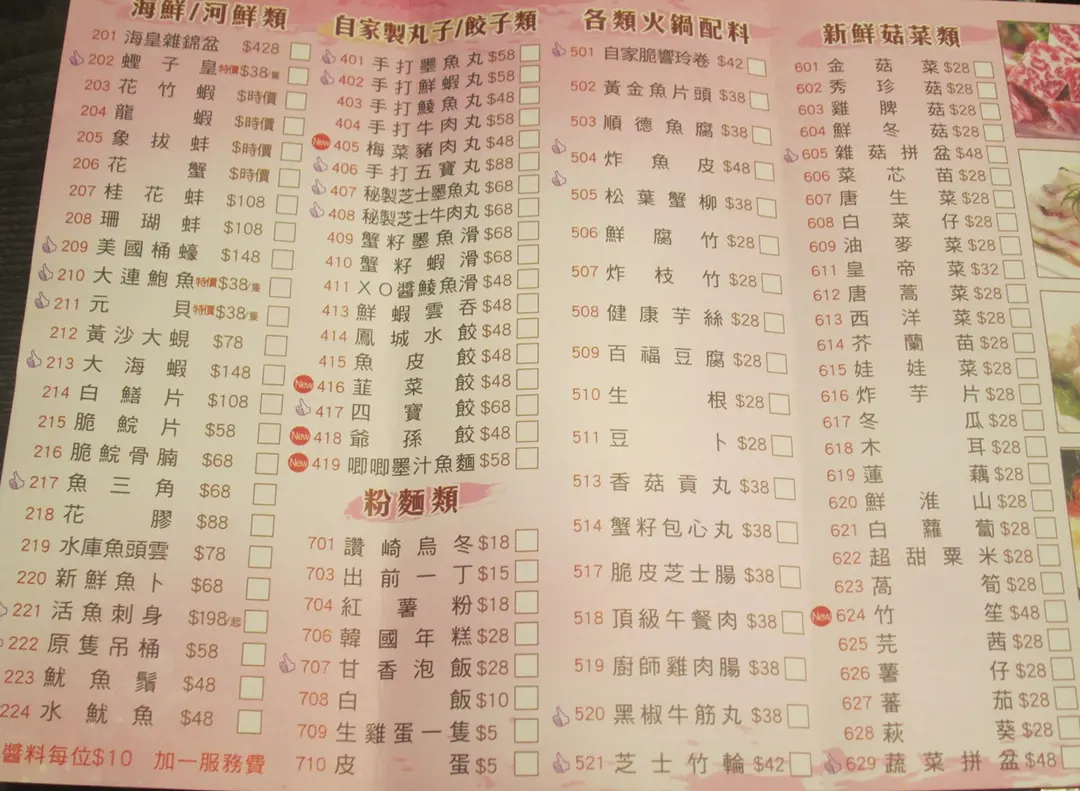 海鮮/河鮮類
201 海皇雜錦盆 $428
202 蟶子皇 特價$38/隻
203 花竹蝦 $時價
204 龍蝦 $時價
205 象拔蚌 $時價
206 花蟹 $時價
207 桂花蚌 $108
208 珊瑚蚌 $108
209 美國桶蠔 $148
210 大連鮑魚 特價$38/隻
211 元貝 特價$38/隻
212 黃沙大蜆 $78
213 大海蝦 $148
214 白鱔片 $108
215 脆鯇片 $58
216 脆鯇骨腩 $68
217 魚三角 $68
218 花膠 $88
219 水庫魚頭雲 $78
220 新鮮魚卜 $68
221 活魚刺身 $198/起
222 原隻吊桶 $58
223 魷魚鬚 $48
224 水魷魚 $48
醬料每位$10 加一服務費
自家製丸子/餃子類
401 手打墨魚丸 $58
402 手打鮮蝦丸 $58
403 手打鯪魚丸 $48
404 手打牛肉丸 $58
New 405 梅菜豬肉丸 $48
406 手打五寶丸 $88
407 秘製芝士墨魚丸 $68
408 秘製芝士牛肉丸 $68
409 蟹籽墨魚滑 $68
410 蟹籽蝦滑 $68
411 XO醬鯪魚滑 $48
413 鮮蝦雲吞 $48
414 鳳城水餃 $48
415 魚皮餃 $48
New 416 韮菜餃 $48
417 四寶餃 $68
New 418 爺孫餃 $48
New 419 唧唧墨汁魚麵 $58
粉麵類
701 讚崎烏冬 $18
703 出前一丁 $15
704 紅薯粉 $18
706 韓國年糕 $28
707 甘香泡飯 $28
708 白飯 $10
709 生雞蛋一隻 $5
710 皮蛋 $5
各類火鍋配料
501 自家脆響玲卷 $42
502 黃金魚片頭 $38
503 順德魚腐 $38
504 炸魚皮 $48
505 松葉蟹柳 $38
506 鮮腐竹 $28
507 炸枝竹 $28
508 健康芋絲 $28
509 百福豆腐 $28
510 生根 $28
511 豆卜 $28
513 香菇貢丸 $38
514 蟹籽包心丸 $38
517 脆皮芝士腸 $38
518 頂級午餐肉 $38
519 廚師雞肉腸 $38
520 黑椒牛筋丸 $38
521 芝士竹輪 $42
新鮮菇菜類
601 金菇菜 $28
602 秀珍菇 $28
603 雞脾菇 $28
604 鮮冬菇 $28
605 雜菇拼盆 $48
606 菜芯苗 $28
607 唐生菜 $28
608 白菜仔 $28
609 油麥菜 $28
611 皇帝菜 $32
612 唐蒿菜 $28
613 西洋菜 $28
614 芥蘭苗 $28
615 娃娃菜 $28
616 炸芋片 $28
617 冬瓜 $28
618 木耳 $28
619 蓮藕 $28
620 鮮淮山 $28
621 白蘿蔔 $28
622 超甜粟米 $28
623 萵筍 $28
New 624 竹笙 $48
625 芫茜 $28
626 薯仔 $28
627 蕃茄 $28
628 萩葵 $28
629 蔬菜拼盆 $48